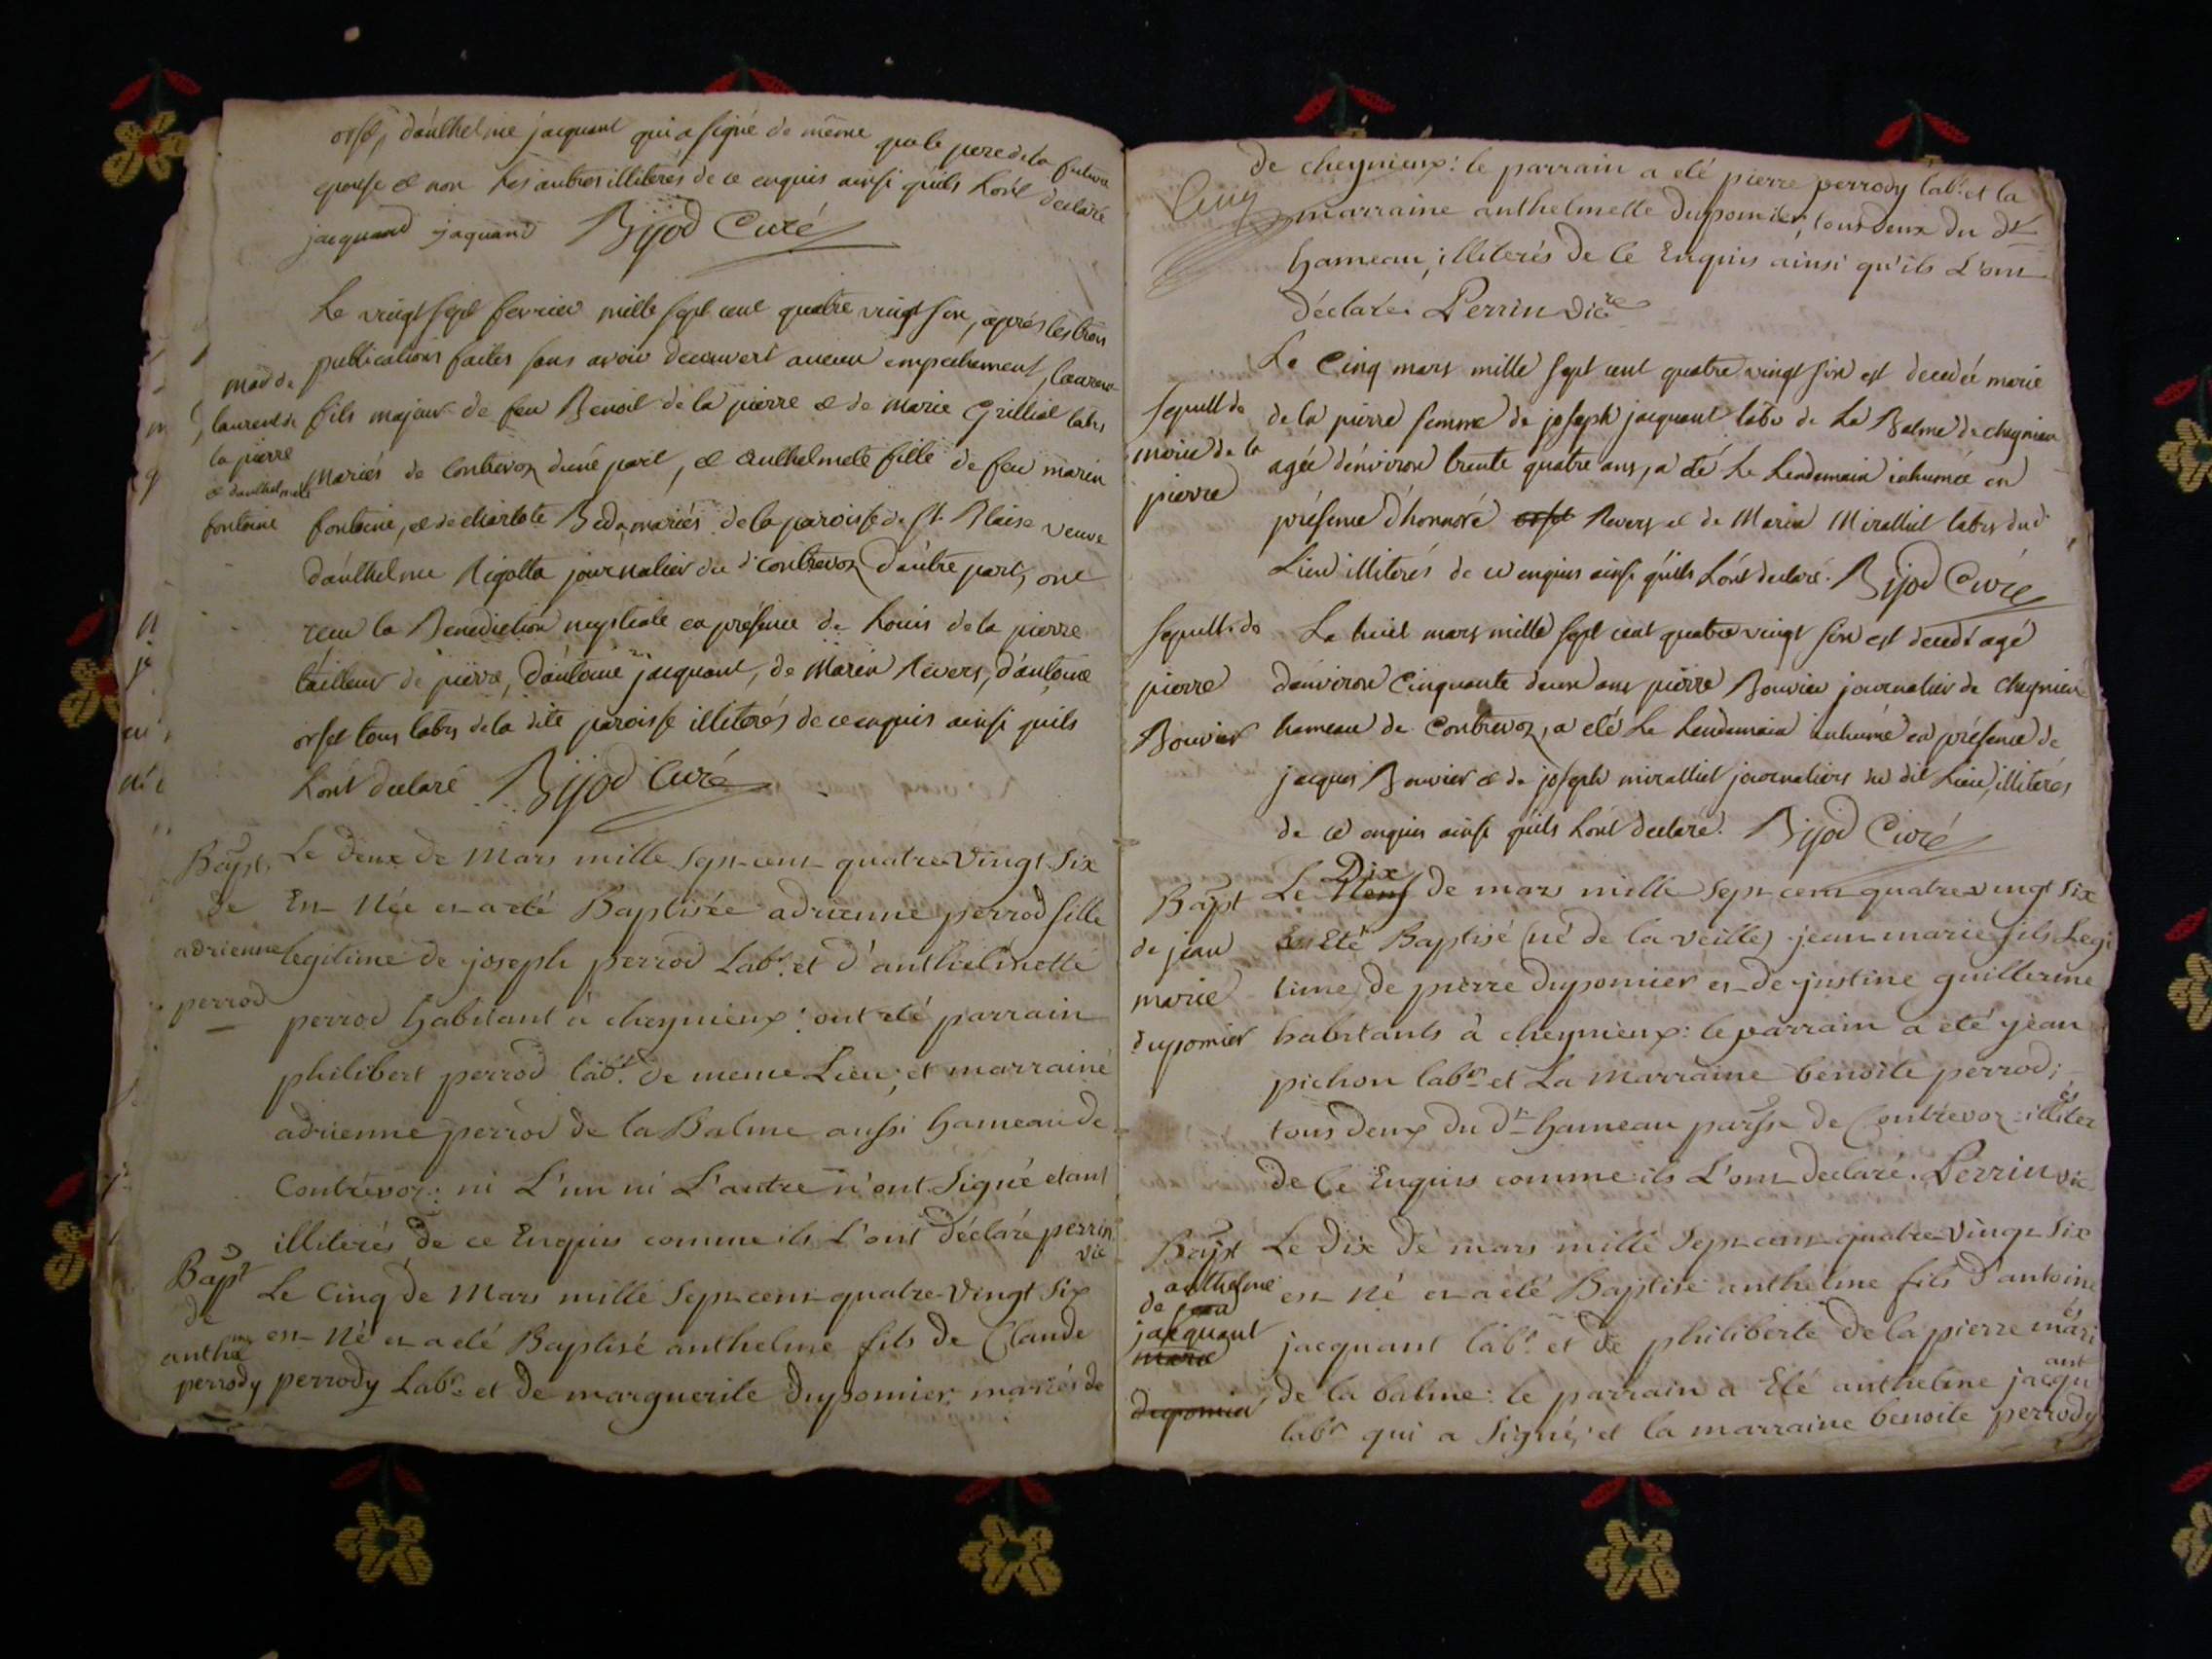 orset, d'aulhelme jacquant qui a signé de même que le pere de la future
epouse et non les autres illiterés de ce enquis ainsi qu'ils l'ont declaré
jacquand jaquand Bijod Curé
Le vingt sept fevrier mille sept cent quatre vingt six, aprés les trois
publications faites sans avoir decouvert aucun empechement, laurent
mar de
laurent de
la pierre
et d'anthelmete
fontaine
fils majeur de feu Benoit de la pierre et de Marie Grilliet labrs
Mariés de Contrevoz d'une part, et Anthelmete fille de feu marin
fontaine, et de charlote Beda, mariés de la paroisse de St. Blaise veuve
d'aulhelme Rigotta journalier du d. Contrevoz d'autre part, ont
recu la Benediction nuptiale en présence de Louis de la pierre
tailleur de pierre, d'antoine jacquant, de Marin Revers, d'antoine
orset tous labrs de la dite paroisse illiterés de ce enquis ainsi quils
l'ont declaré Bijod Curé
Bapt.
de
adrienne
perrod
Le deux de Mars mille sept cent quatre vingt six
Est Née et a eté Baptisée adrienne perrod fille
legitime de joseph perrod Labr. et d'anthelmette
perrod habitant à cheynieux: ont eté parrain
philibert perrod labr. de meme Lieu; et marraine
adrienne perrod de la Balme aussi hameau de
Contrevoz: ni L'un ni L'autre n'ont Signé etant
illiterés de ce Enquis comme ils L'ont déclaré perrin
vic
Bapt
de
anthelme
perrody
Le Cinq de Mars mille sept cent quatre Vingt Six
est Né et a eté Baptisé anthelme fils de Claude
perrody Labr. et de marguerite Dupomier mariés de
Cinq
de cheynieux: le parrain a eté pierre perrody labr. et la
marraine anthelmette Dupomier, tous deux du dt
hameau, illiterés de ce Enquis ainsi qu'ils L'ont
déclaré. Perrin Vicre
Sepult de
marie de la
pierre
Le Cinq mars mille sept cent quatre vingt six est decedée marie
de la pierre femme de joseph jacquant labr de La Balme de cheynieu
agée d'environ trente quatre ans, a eté Le Lendemain inhumée en
présence d'honnoré orset Revers et de Marin Miralliet labrs dud
Lieu illiterés de ce enquis ainsi qu'ils L'ont declaré. Bijod Curé
Sepult. de
pierre
Bouvier
Le huit mars mille sept cent quatre vingt six est decedé agé
d'environ Cinquante deux ans pierre Bouvier journalier de cheynieu
hameau de Contrevoz, a eté Le Lendemain inhumé en présence de
jacques Bouvier et de joseph miralliet journaliers du dit Lieu, illiterés
de ce enquis ainsi quils L'ont declaré. Bijod Curé
Bapt
de jean
marie
dupomier
Le Neuf Dix de mars mille sept cent quatre vingt six
a Eté Baptisé (né de la veille) jean marie fils Legi
time de pierre Dupomier et de justine guillerme
habitants à cheynieux: le parrain a eté jean
pichon labr. et La Marraine benoite perrod;
tous deux du dt hameau parsse de Contrevoz illiterés
de Ce Enquis comme ils L'ont declaré. Perrin vic
Bapt
anthelme
de
jacquant
marie
dupomier
Le Dix de mars mille sept cent quatre Vingt Six
est Né et a eté Baptisé anthelme fils d'antoine
jacquant labr. et de philiberte de la pierre mariés
de la balme: le parrain a Eté anthelme jacquant
labr qui a signé; et la marraine benoite perrody